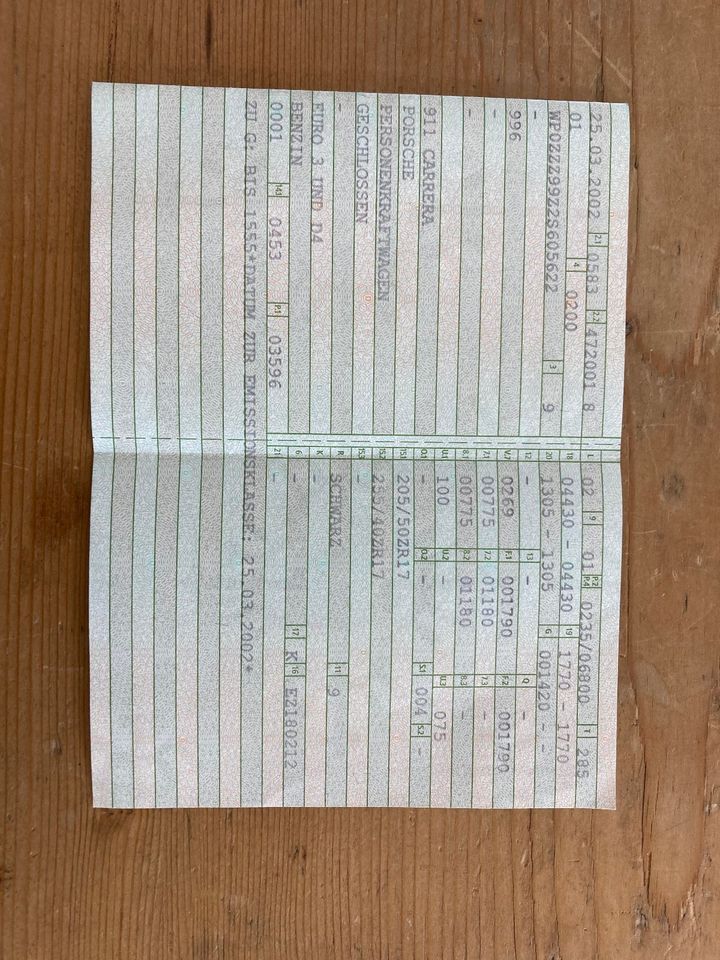 25.03.2002 2.1 0583 2.2 472001 8 L 02 9 01 P.2 P.4 0235/06800 T 285
01 4 0200 18 04430 - 04430 19 1770 - 1770
WP0ZZZ99Z2S605622 3 9 20 1305 - 1305 G 001420 - -
- 12 - 13 - Q -
996 V.7 0269 F.1 001790 F.2 001790
- 7.1 00775 7.2 01180 7.3 -
- 8.1 00775 8.2 01180 8.3 -
911 CARRERA U.1 100 U.2 - U.3 075
PORSCHE O.1 - O.2 - S.1 004 S.2 -
PERSONENKRAFTWAGEN 15.1 205/50ZR17
GESCHLOSSEN 15.2 255/40ZR17
15.3 -
- R SCHWARZ 11 9
EURO 3 UND D4 K -
BENZIN 6 - 17 K 16 EZ180212
0001 14.1 0453 P.1 03596 21 -
ZU G: BIS 1555*DATUM ZUR EMISSIONSKLASSE: 25.03.2002*